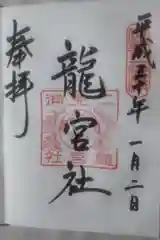 平成三十年一月二日
龍宮社
奉拝